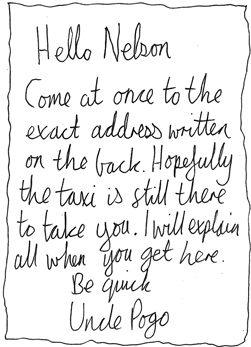 Hello Nelson
Come at once to the
exact address written
on the back. Hopefully
the taxi is still there
to take you. I will explain
all when you get here.
Be quick
Uncle Pogo